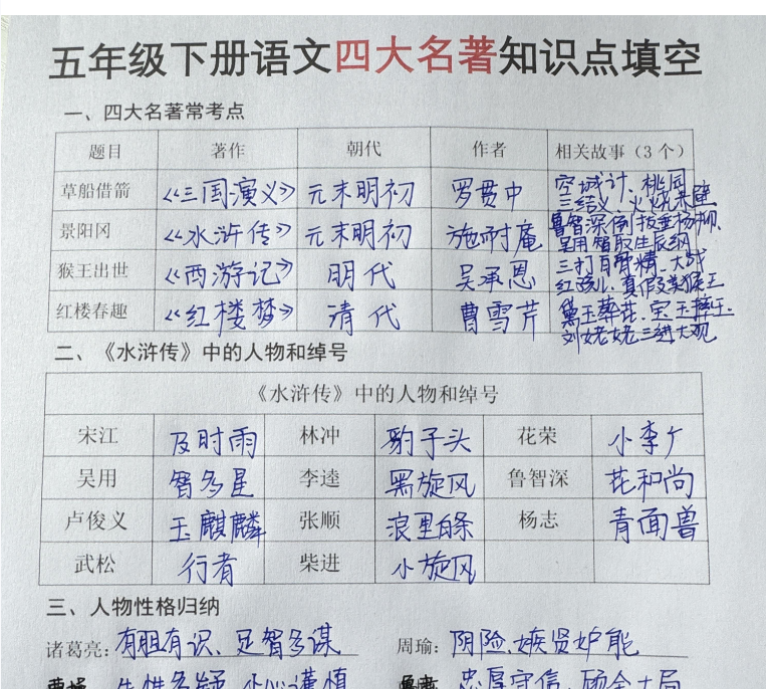 五年级下册语文四大名著知识点填空
一、四大名著常考点
题目 著作 朝代 作者 相关故事（3个）
草船借箭 《三国演义》 元末明初 罗贯中 空城计、桃园三结义、火烧赤壁
景阳冈 《水浒传》 元末明初 施耐庵 鲁智深倒拔垂杨柳、吴用智取生辰纲
猴王出世 《西游记》 明代 吴承恩 三打白骨精、大战红孩儿、真假美猴王
红楼春趣 《红楼梦》 清代 曹雪芹 黛玉葬花、宝玉摔玉、刘姥姥三进大观
二、《水浒传》中的人物和绰号
《水浒传》中的人物和绰号
宋江 及时雨 林冲 豹子头 花荣 小李广
吴用 智多星 李逵 黑旋风 鲁智深 花和尚
卢俊义 玉麒麟 张顺 浪里白条 杨志 青面兽
武松 行者 柴进 小旋风
三、人物性格归纳
诸葛亮：有胆有识、足智多谋 周瑜：阴险、嫉贤妒能
曹操 生性多疑、小心谨慎 鲁肃 忠厚守信、顾全大局